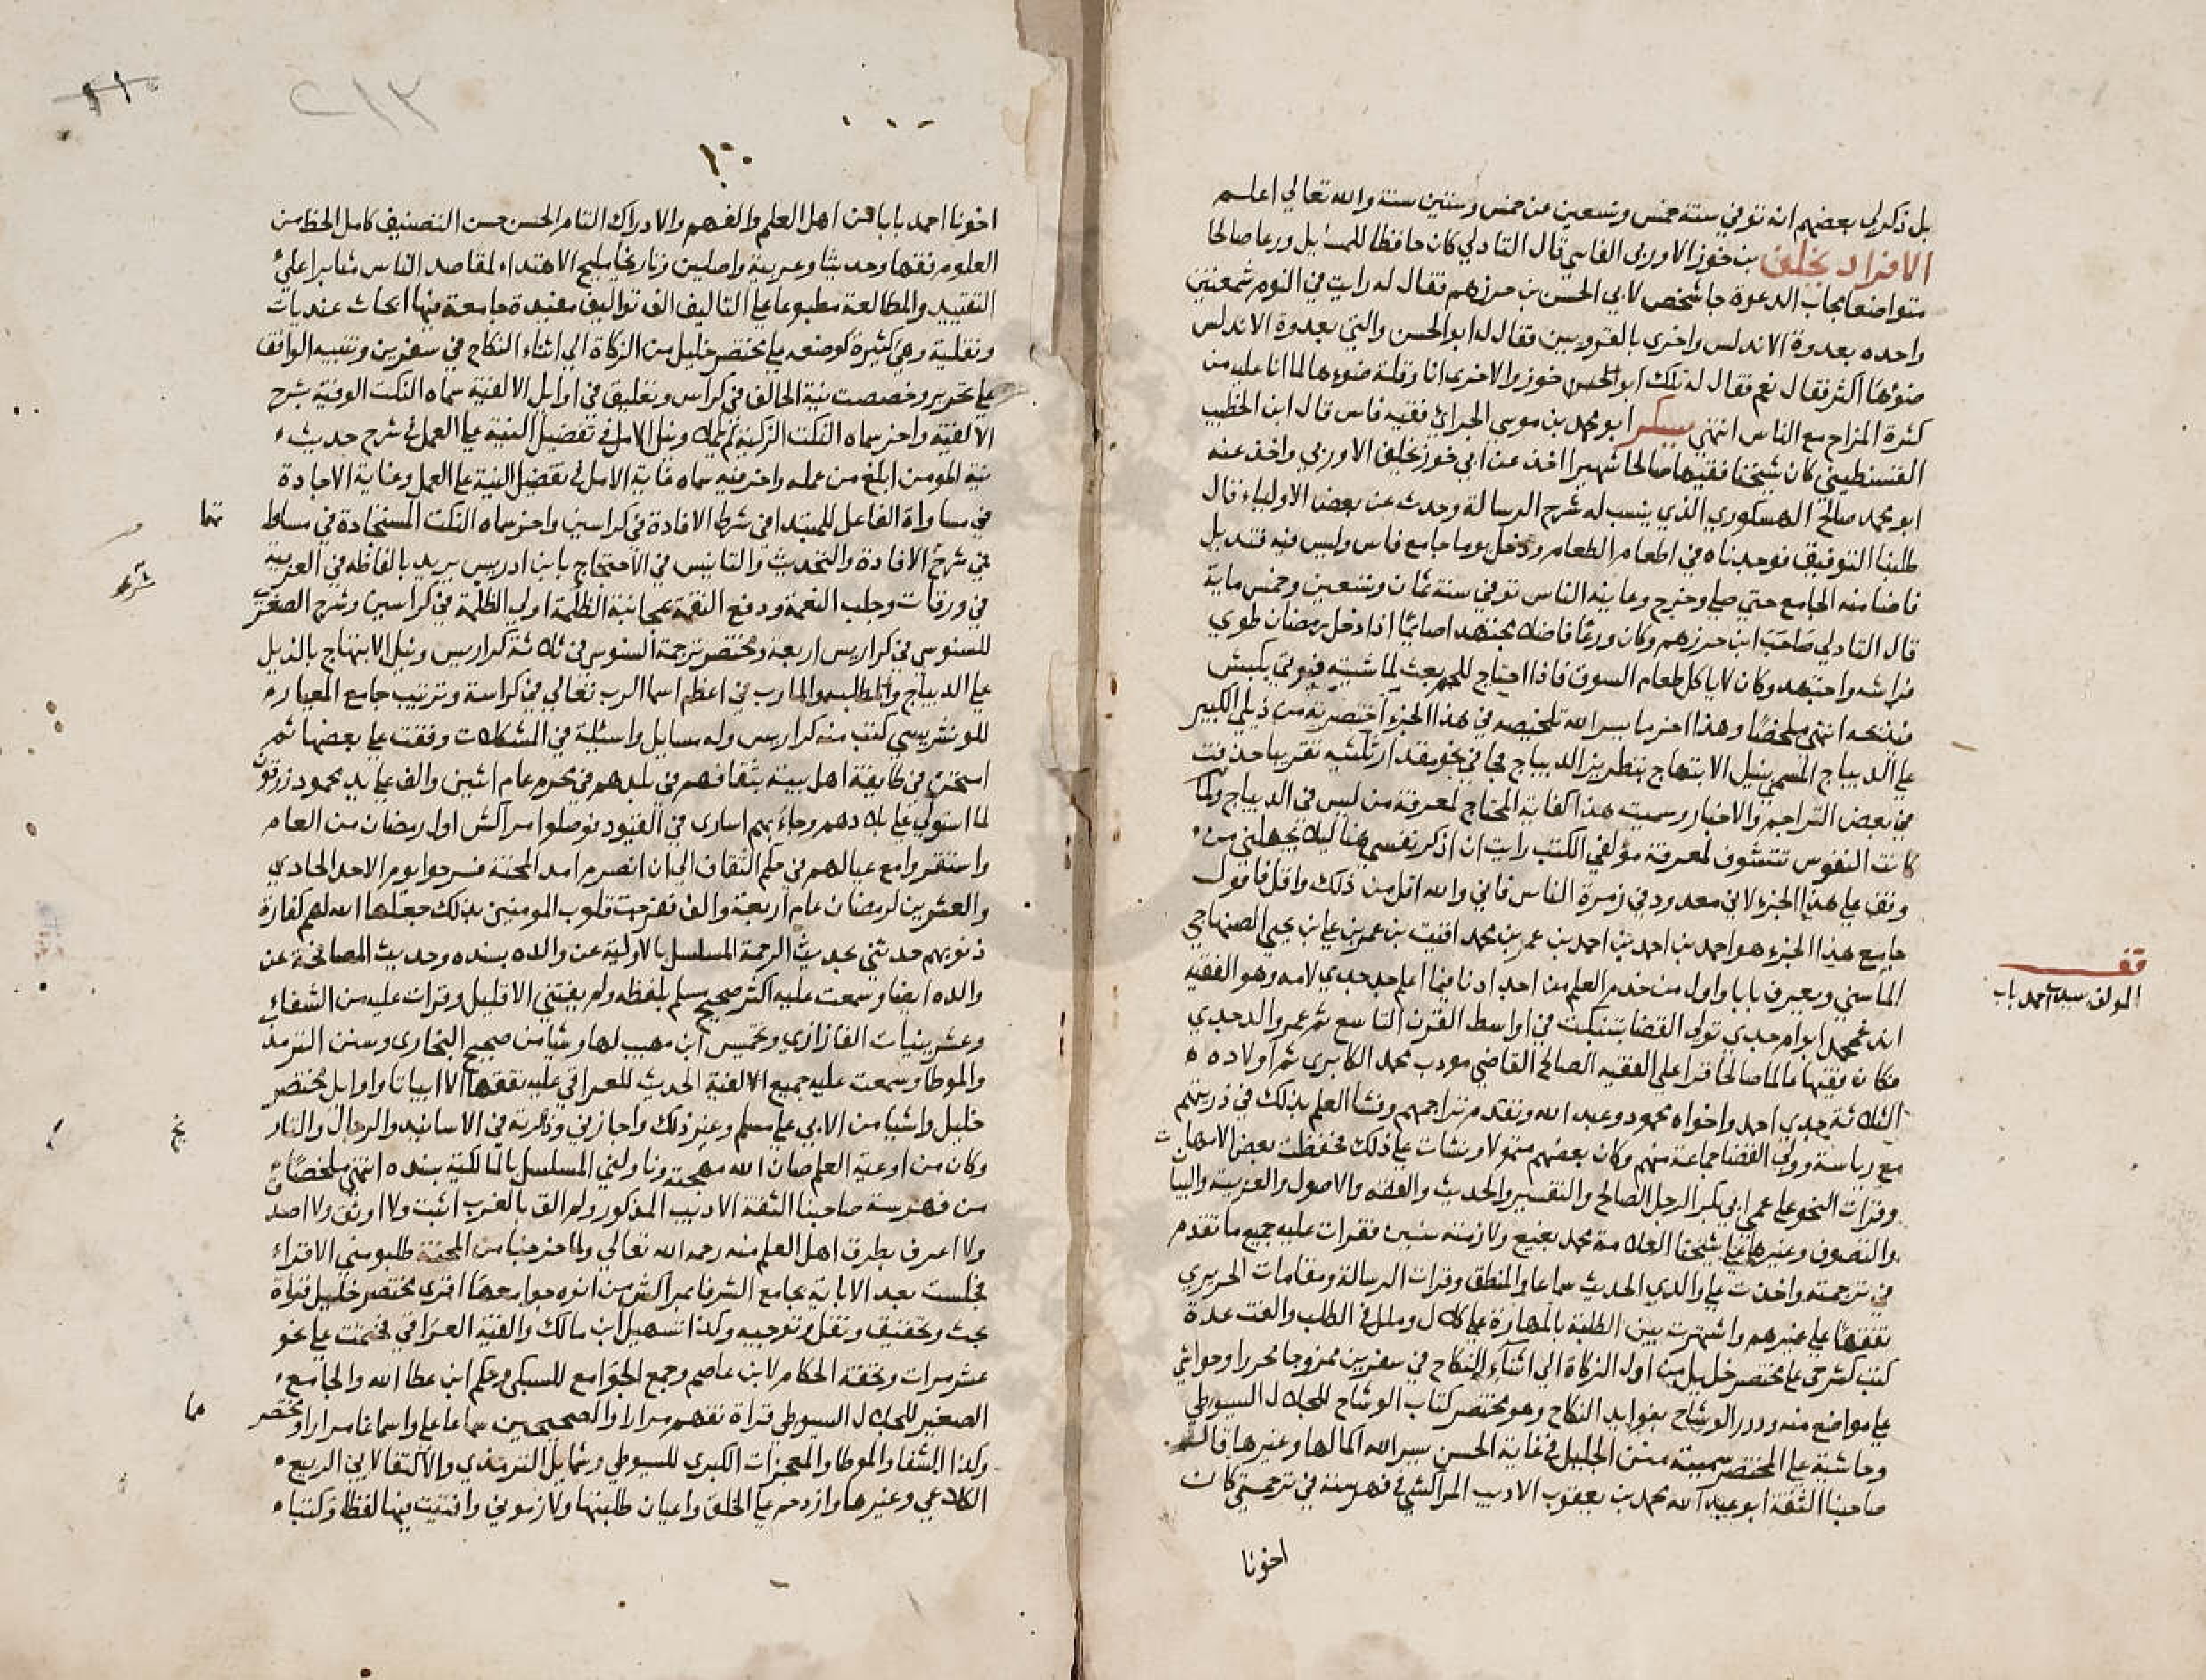 بل ذكر لي بعضهم انه توفي سنة خمس وتسعين عن خمس وستين سنة والله تعالي اعلم
الافراد يخلف بن خوز الاوربي الفاسي قال التادلي كان حافظا للمسايل ورعا صالحا
متواضعا مجاب الدعوة جا شخص لابي الحسن بن حرزهم فقال له رايت في النوم شمعتين
واحده بعدوة الاندلس واخري بالقرويين فقال له ابو الحسن والتي بعدوة الاندلس
ضوؤها اكثر فقال نعم فقال له تلك ابو خوز والاخري انا وقلة ضوءها لما انا عليه من
كثرة المزاح مع الناس انتهي يسكر ابو محمد بن موسي الجراوي فقيه فاس قال ابن الخطيب
القسنطيني كان شيخنا فقيها صالحا شهيرا اخذ عن ابي خوز يخلف الاوربي واخذ عنه
ابو محمد صالح الهسكوري الذي ينسب له شرح الرسالة وحدث عن بعض الاولياء قال
طلبنا التوفيق فوجدناه في اطعام الطعام ودخل يوما جامع فاس وليس فيه قنديل
فاضا منه الجامع حتي صلي وخرج وعاينه الناس توفي سنة ثمان وتسعين وخمس ماية
قال التادلي صاحب ابن حرزهم وكان ورعا فاضلا مجتهدا صايما اذا دخل رمضان طوي
فراشه واجتهد وكان لا ياكل طعام السوق فاذا احتاج للحم بعث لماشيته فيوتي بكبش
فيذبحه انتهي ملخصا وهذا اخر ما يسر الله تلخيصه في هذا الجزء اختصرته من ذيلي الكبير
علي الديباج المسمي بنيل الابتهاج بتطريز الديباج فجا في نحو مقدار ثلثيه تقريبا حذفت
في بعض التراجم والاخبار وسميت هذا كفاية المحتاج لمعرفة من ليس في الديباج ولما
كانت النفوس تتشوف لمعرفة مؤلفي الكتب رايت ان اذكر نفسي هنا ليلا يجهلني من
وقف علي هذا الجزء لا اني معدود في زمرة الناس فاني والله اقل من ذلك واقل فاقول
جامع هذا الجزء هو احمد بن احمد بن احمد بن عمر بن محمد اقيت بن عمر بن علي بن يحيي الصنهاجي
الماسني ويعرف بابا واول من خدم العلم من اجدادنا فيما اعلم جد جدي لامه وهو الفقيه
اند غمحمد ابو ام جدي تولي القضا بتنبكت في اواسط القرن التاسع ثم عمر والد جدي
فكان فقيها عالما صالحا قرا علي الفقيه الصالح القاضي مودب محمد الكابري ثم اولاده
الثلاثة جدي احمد واخواه محمود وعبد الله وتقدم تراجمهم ونشا العلم بذلك في ذريتهم
مع رياسة وولي القضا جماعة منهم وكان بعضهم متمولا ونشات علي ذلك فحفظت بعض الامهات
وقرات النحو علي عمي ابي بكر الرجل الصالح والتفسير والحديث والفقه والاصول والعربية والبيان
والتصوف وغيرها علي شيخنا العلامة محمد بغيع ولازمته سنين فقرات عليه جميع ما تقدم
في ترجمته واخذت علي والدي الحديث سماعا والمنطق وقرات الرسالة ومقامات الحريري
تفقها علي غيرهم واشتهرت بين الطلبة بالمهارة علي كلال وملل في الطلب والفت عدة
كتب كشرحي علي مختصر خليل من اول الزكاة الي اثناء النكاح في سفرين ممزوجا محررا وحواشي
علي مواضع منه ودرر الوشاح بفوايد النكاح وهو مختصر كتاب الوشاح للجلال السيوطي
وحاشية علي المختصر سميته منن الجليل في غاية الحسن يسر الله اكمالها وغيرها قال
صاحبنا الثقة ابو عبد الله محمد بن يعقوب الاديب المراكشي في فهرسته في ترجمتي كان
اخونا
قف
المولف سيدي احمد باب
٢١٣
اخونا احمد بابا من اهل العلم والفهم والادراك التام الحسن حسن التصنيف كامل الحظ من
العلوم فقها وحديثا وعربية واصلين وتاريخا مليح الاهتداء لمقاصد الناس مثابرا علي
التقييد والمطالعة مطبوعا علي التاليف الف تواليف مفيدة جامعة فيها ابحاث عنديات
ونقلية وهي كثيرة كوضعه علي مختصر خليل من الزكاة الي اثناء النكاح في سفرين وتنبيه الواقف
علي تحرير وخصصت نية الحالف في كراس وتعليق في اوايل الالفية سماه النكت الوفية بشرح
الالفية واخر سماه النكت الزكية لم يكملا ونيل الامل في تفضيل النية علي العمل في شرح حديث
نية المومن ابلغ من عمله واخر فيه سماه غاية الامل في تفضيل النية علي العمل وغاية الاجادة
في مساواة الفاعل للمبتدا في شرط الافادة في كراسين واخر سماه النكت المستجادة في مساواة
في شرط الافادة والتحديث والتانيس في الاحتجاج بابن ادريس يريد بالفاظه في العربية
في ورقات وجلب النعمة ودفع النقمة بمجانبة الظلمة اولي الظلمة في كراسين وشرح الصغري
للسنوسي في كراريس اربعة ومختصر ترجمة السنوسي في ثلاثة كراريس ونيل الابتهاج بالذيل
علي الديباج والمطلب والمارب في اعظم اسما الرب تعالي في كراسة وترتيب جامع المعيار
للونشريسي كتب منه كراريس وله مسايل واسئلة في المشكلات وقفت علي بعضها ثم
امتحن في طايفة اهل بيته بثقافهم في بلدهم في محرم عام اثنين والف علي يد محمود زرقون
لما استولي علي بلادهم وجاء بهم اساري في القيود فوصلوا مراكش اول رمضان من العام
واستقروا مع عيالهم في حكم الثقاف الي ان انصرم امد المحنة فسرحوا يوم الاحد الحادي
والعشرين لرمضان عام اربعة والف ففرحت قلوب المومنين بذلك جعلها الله لهم كفارة
ذنوبهم حدثني بحديث الرحمة المسلسل بالاولية عن والده بسنده وحديث المصافحة عن
والده ايضا وسمعت عليه اكثر صحيح مسلم بلفظه ولم يفتني الا قليل وقرات عليه من الشفاء
وعشرينيات الفازازي وتخميس ابن مهيب لها وشيا من صحيح البخاري وسنن الترمذي
والموطا وسمعت عليه جميع الالفية الحديث للعراقي عليه بتفقه الا ابياتا واوايل مختصر
خليل واشيا من الابي علي مسلم وغير ذلك واجازني وذاكرته في الاسانيد والرجال والتار
وكان من اوعية العلم صان الله مهجته وناولني المسلسل بالمالكية بسنده انتهي ملخصا
من فهرسة صاحبنا الثقة الاديب المذكور ولم الق بالغرب اثبت ولا اوثق ولا اصدق
ولا اعرف بطرق اهل العلم منه رحمه الله تعالي ولما خرجنا من المحنة طلبوا مني الاقراء
فجلست بعد الاباية بجامع الشرفا بمراكش من انوه جوامعها اقري مختصر خليل قراة
بحث وتحقيق ونقل وتوجيه وكذا تسهيل ابن مالك والفية العراقي فختمت علي نحو
عشر مرات وتحفة الحكام لابن عاصم وجمع الجوامع للسبكي وحكم ابن عطا الله والجامع
الصغير للجلال السيوطي قراة تفهم مرارا والصحيحين سماعا علي واسماعا مرارا ومختصر
وكذا الشفا والموطا والمعجزات الكبري للسيوطي وشمايل الترمذي والاكتفا لابي الربيع
الكلاعي وغيرها وازدحم علي الخلق واعيان طلبتها ولازموني وافتيت فيها لفظا وكتبا
هما